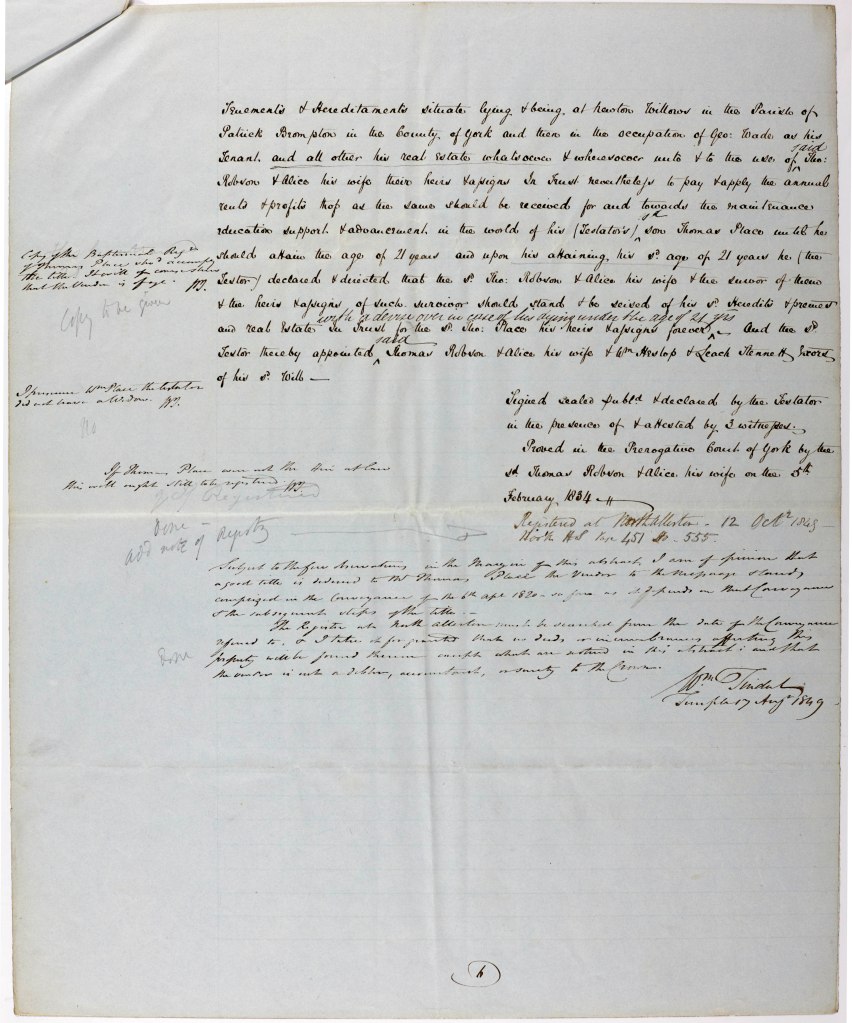 Tenements & Hereditaments situate lying & being at Newton Willows in the Parish of
Patrick Brompton in the County of York and then in the occupation of Geo: Wade as his
said
Tenant. and all other his real Estate whatsoever & wheresoever unto & to the use of Tho:
Robson & Alice his wife their heirs & assigns In Trust nevertheless to pay & apply the annual
rents & profits thof as the same should be received for and towards the maintenance
education support & advancement in the world of his (Testator's) sd son Thomas Place until he
Copy of the Baptismal Regr
of Thomas Place shod accompy
the title. It will of course shew
that the Vendor is of age. WT.
should attain the age of 21 years and upon his attaining his sd age of 21 years he (the
Testor) declared & directed that the sd Tho: Robson & Alice his wife & the survor of them
Copy to be given
& the heirs & assigns of such survivor should stand & be seised of his sd Heredits & premes
with a devise over in case of his dying under the age of 21 yrs
and real Estate In Trust for the sd Tho: Place his heirs & assigns forever, And the sd
said
Testor thereby appointed Thomas Robson & Alice his wife & Wm Heslop & Leach Stennett Excors
of his sd Will —
I presume Wm Place the testator
did not leave a Widow. WT.
No
Signed sealed publd & declared by the Testator
in the presence of & attested by 3 witnesses.
Proved in the Prerogative Court of York by the
sd Thomas Robson & Alice his wife on the 5th
February 1834
If Thomas Place were not the heir at law
this will ought still to be registered WT.
Registered
Done —
add note of registry
Registered at Northallerton - 12 Octr 1849 —
Book H.S. Page 451 No - 555.
Subject to the few observations in the Margin of this abstract, I am of opinion that
a good title is deduced to Mr Thomas Place the Vendor to the Messuage & lands
comprized in the Conveyance of the 6th apl 1820 - so far as it depends on that Conveyance
& the subsequent steps of the title. —
The Register at Northallerton must be searched from the date of the Conveyance
referred to. & I take it for granted that no deeds or incumbrances affecting this
Done
property will be found therein except what are noticed in this abstract: and that
the vendor is not a debtor, accountant, or surety to the Crown.
Wm Tindal
Temple 17 Augt 1849
6